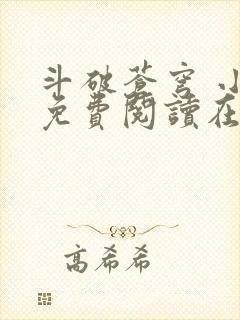 斗破蒼穹 小
免費閱讀在
高希希